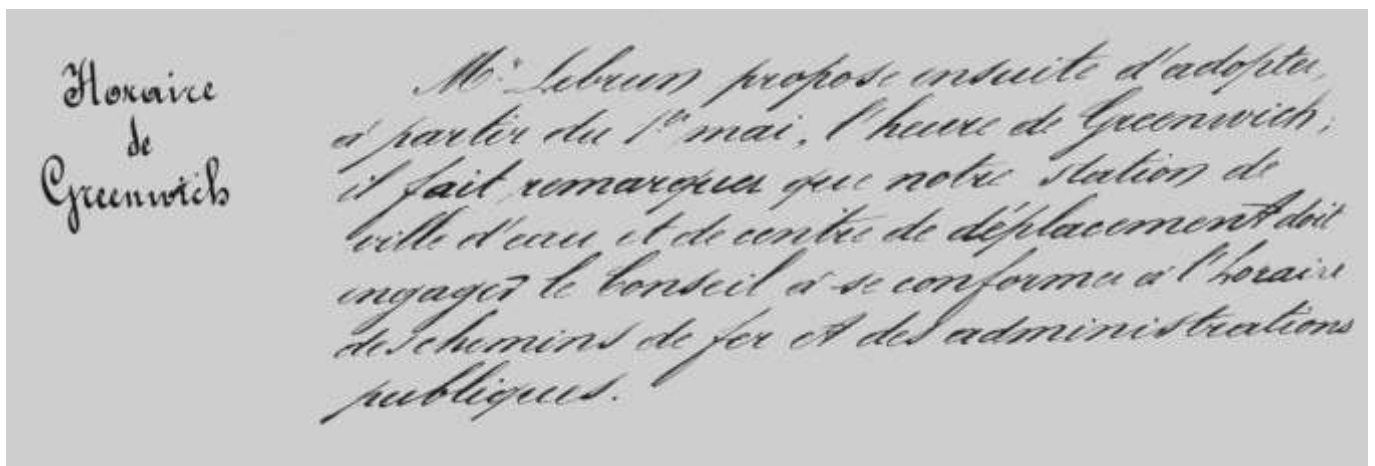 Horaire
de
Greenwich
Mr. Lebrun propose ensuite d'adopter,
à partir du 1er mai, l'heure de Greenwich;
il fait remarquer que notre station de
ville d'eau et de centre de déplacement doit
engager le Conseil à se conformer à l'horaire
des chemins de fer et des administrations
publiques.